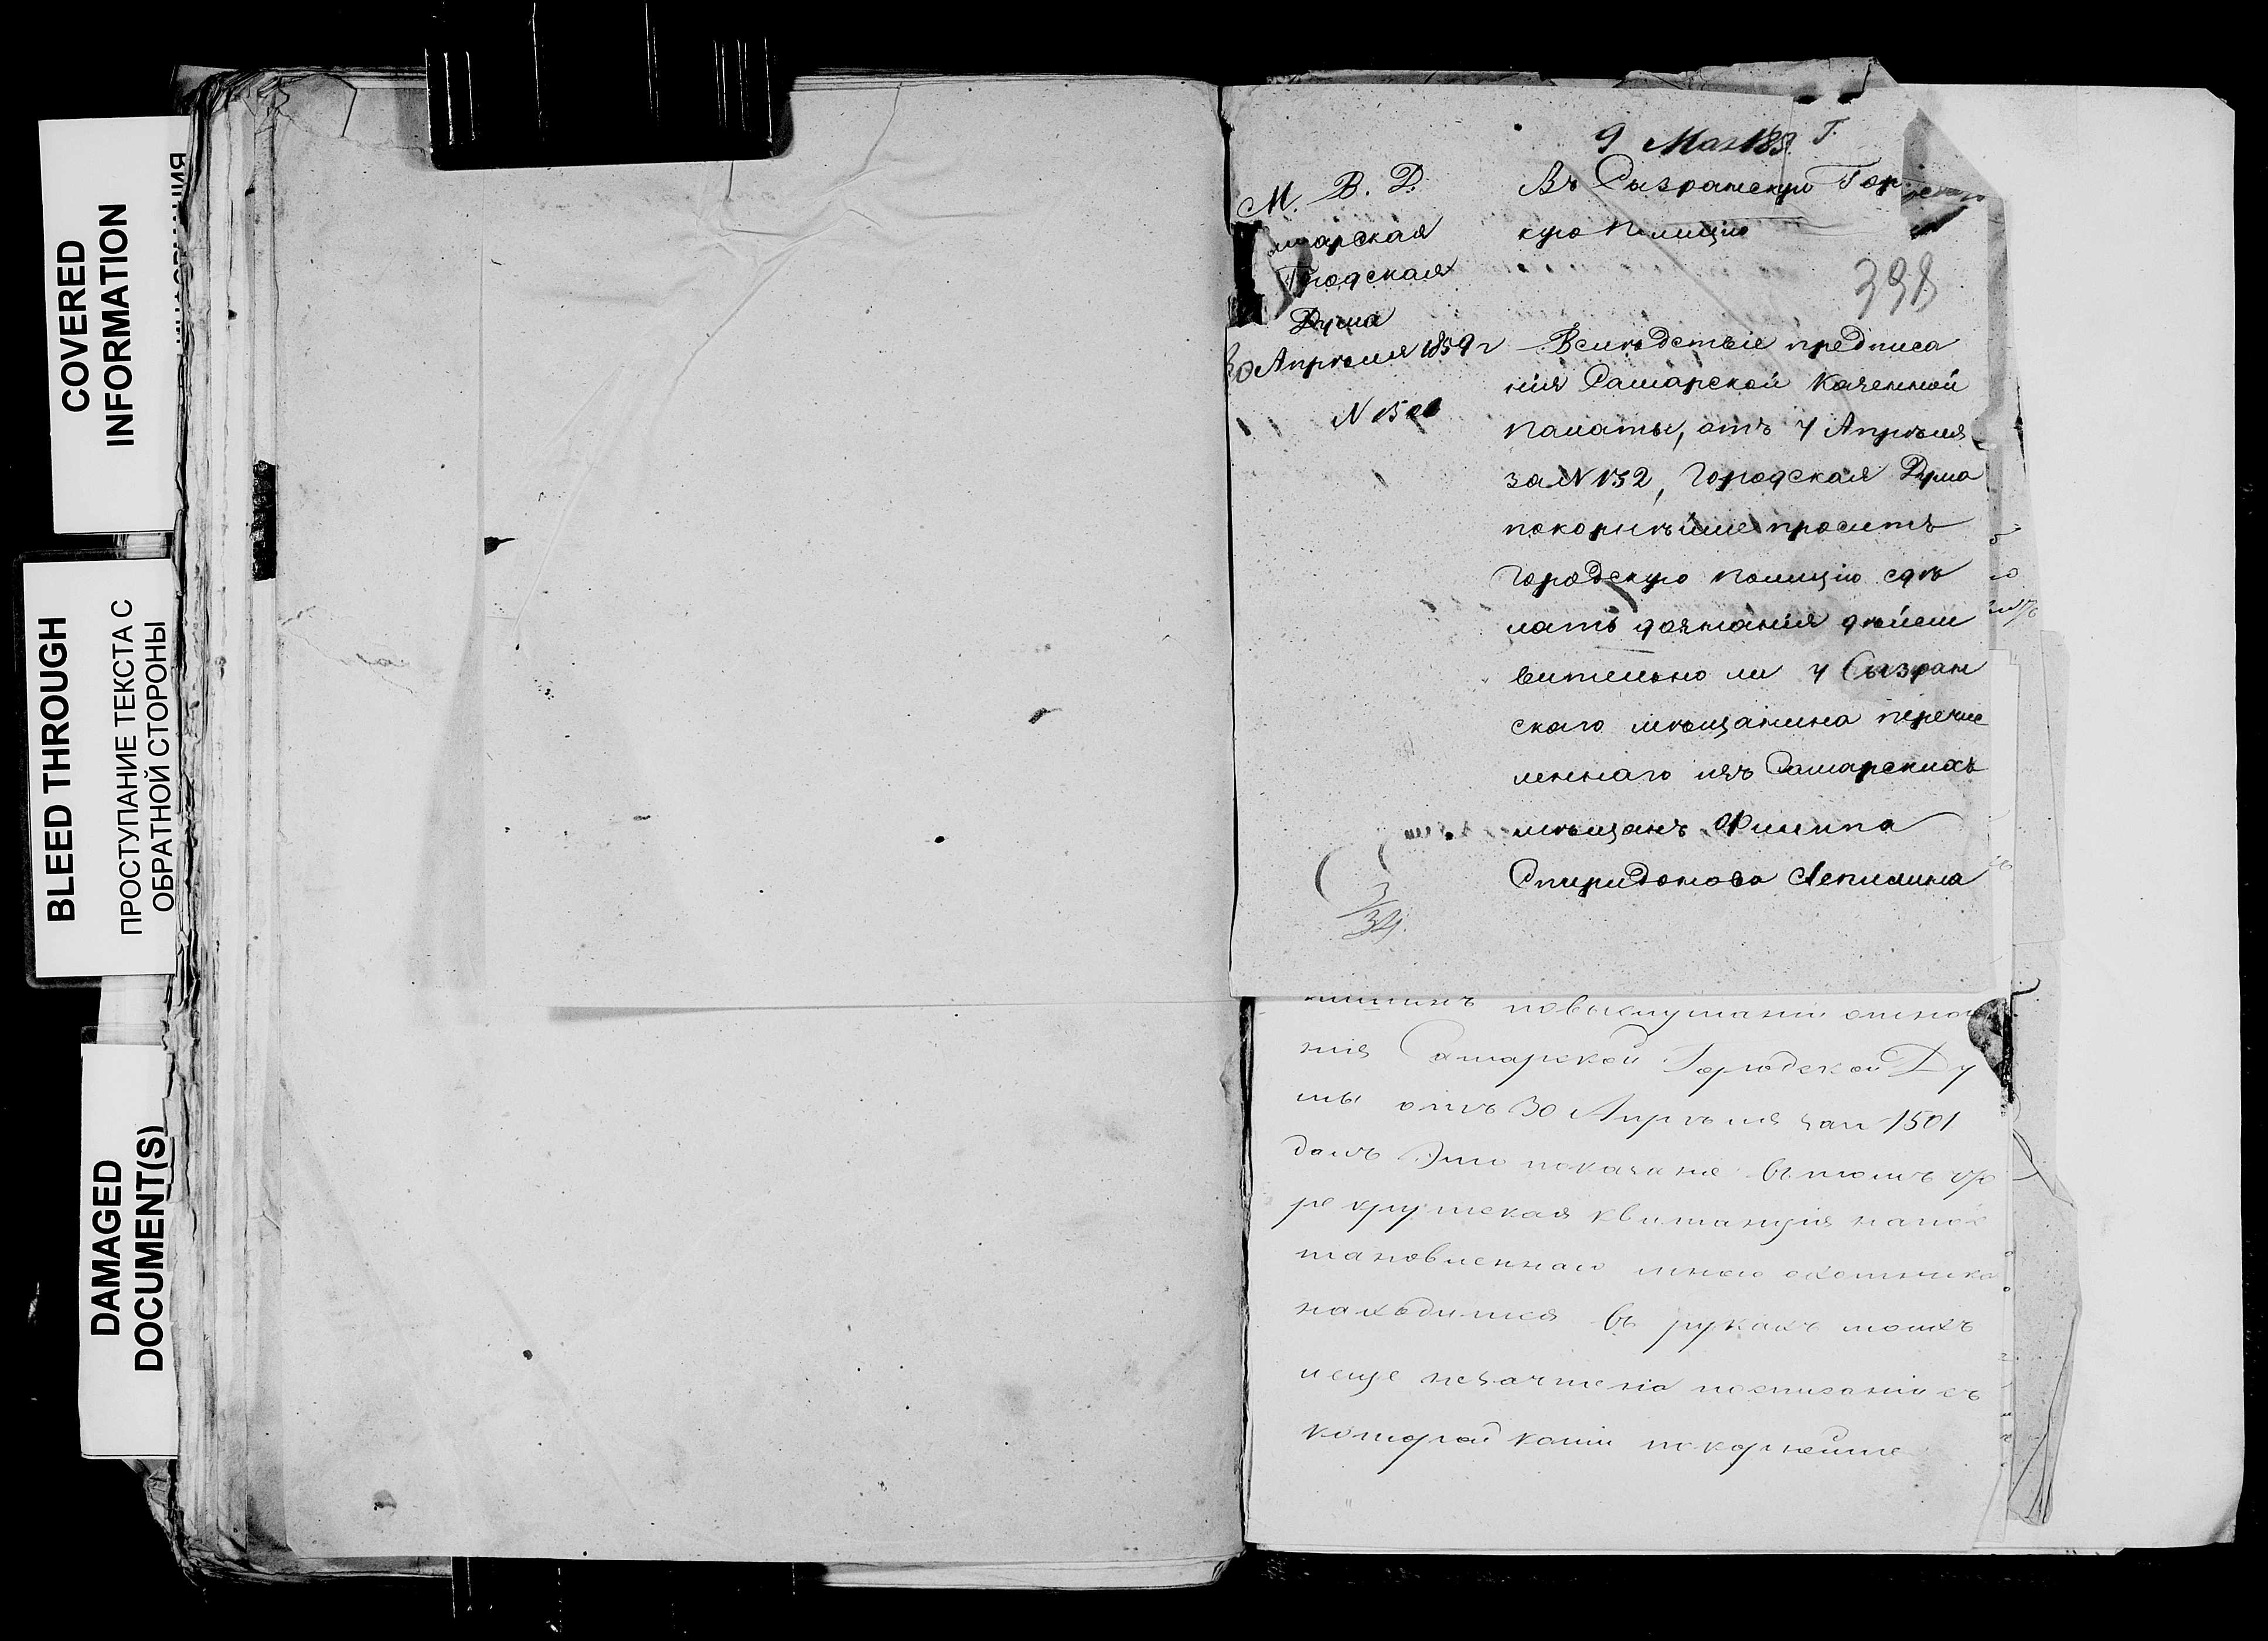 COVERED
INFORMATION
BLEED THROUGH
ПРОСТУПАНИЕ ТЕКСТА С
ОБРАТНОЙ СТОРОНЫ
DAMAGED
DOCUMENT(S)
9 Мая 1859 Г.
М. В. Д.
марская
Городская
Дума
30 Апрѣля 1859 г
N 1501
Въ Сызранскую Гор
кую Полицію
398
Вслѣдствіе предписа
нія Самарской Казенной
Палаты, отъ 4 Апрѣля
за N 132, Городская Дума
покорнѣйше проситъ
Городскую Полицію сдѣ
лать дознанія дѣйст
вительно ли у Сызран
скаго мѣщанина перечис
леннаго изъ Самарскихъ
мѣщанъ Филипа
Спиридонова Лепилина
3/34
повыслушаніи отно
нія Самарской Городской Ду
мы отъ 30 Апрѣля за N 1501
далъ Это показаніе вътомъ что
рекрутская квитанція
тановленнаго мною охотника
находится въ рукахъ моихъ
иеще незачтена съ
которой копіи покорнейше